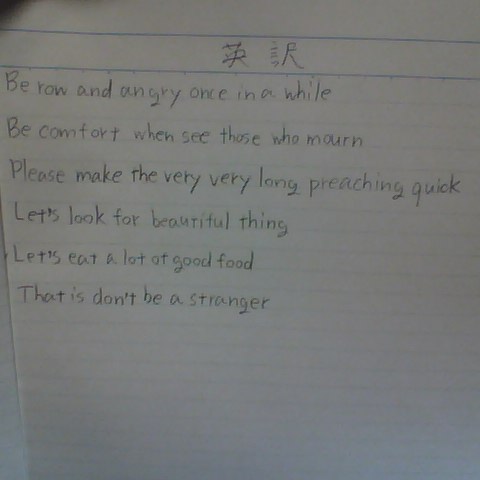 英訳
Be row and angry once in a while
Be comfort when see those who mourn
Please make the very very long preaching quick
Let's look for beautiful thing
Let's eat a lot of good food
That is don't be a stranger